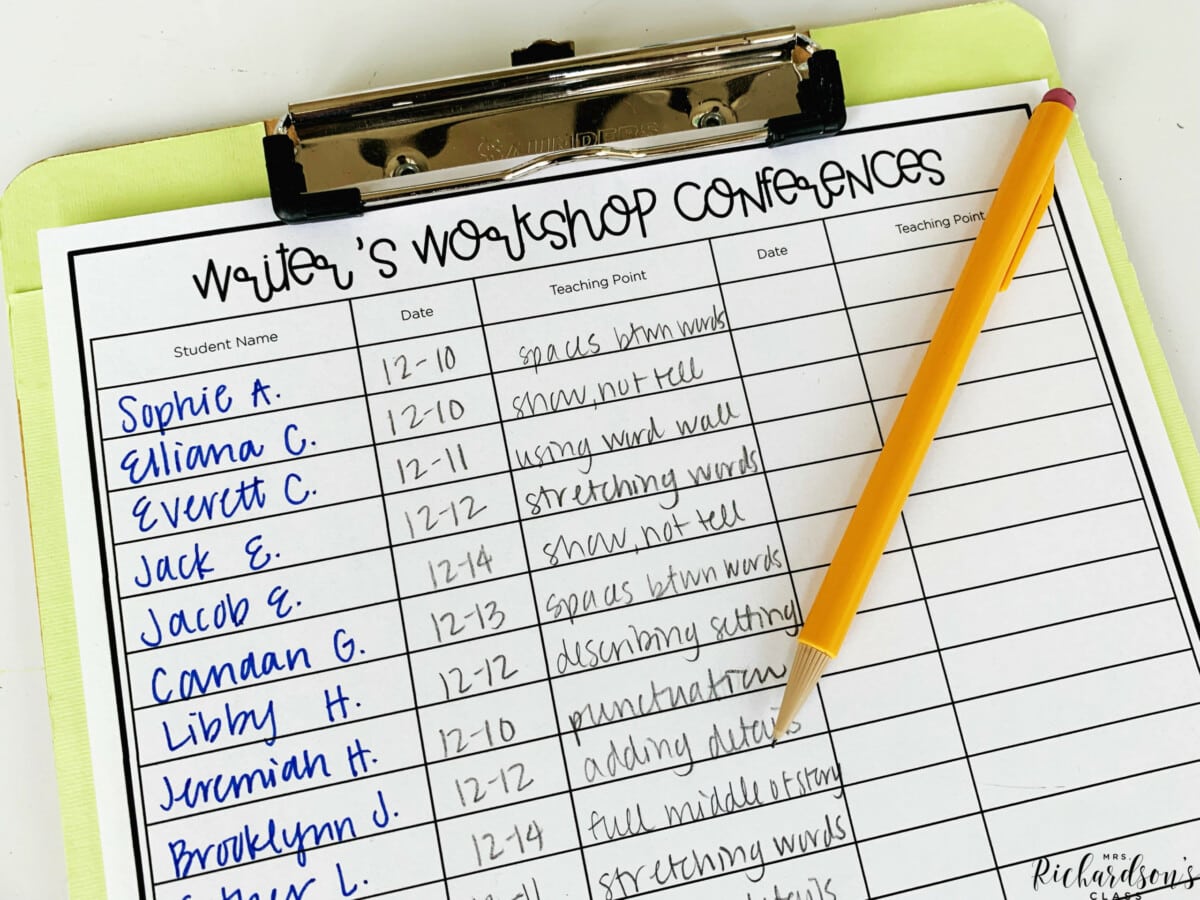 SAUNDERS
Writer's Workshop Conferences
Student Name Date Teaching Point Date Teaching Point
Sophie A. 12-10 spaces btwn words
Elliana C. 12-10 show, not tell
Everett C. 12-11 using word wall
Jack E. 12-12 stretching words
Jacob E. 12-14 show, not tell
Candan G. 12-13 spaces btwn words
Libby H. 12-12 describing setting
Jeremiah H. 12-10 punctuation
Brooklynn J. 12-12 adding details
L. 12-14 full middle of story
stretching words
details
MRS.
Richardson's
CLASS